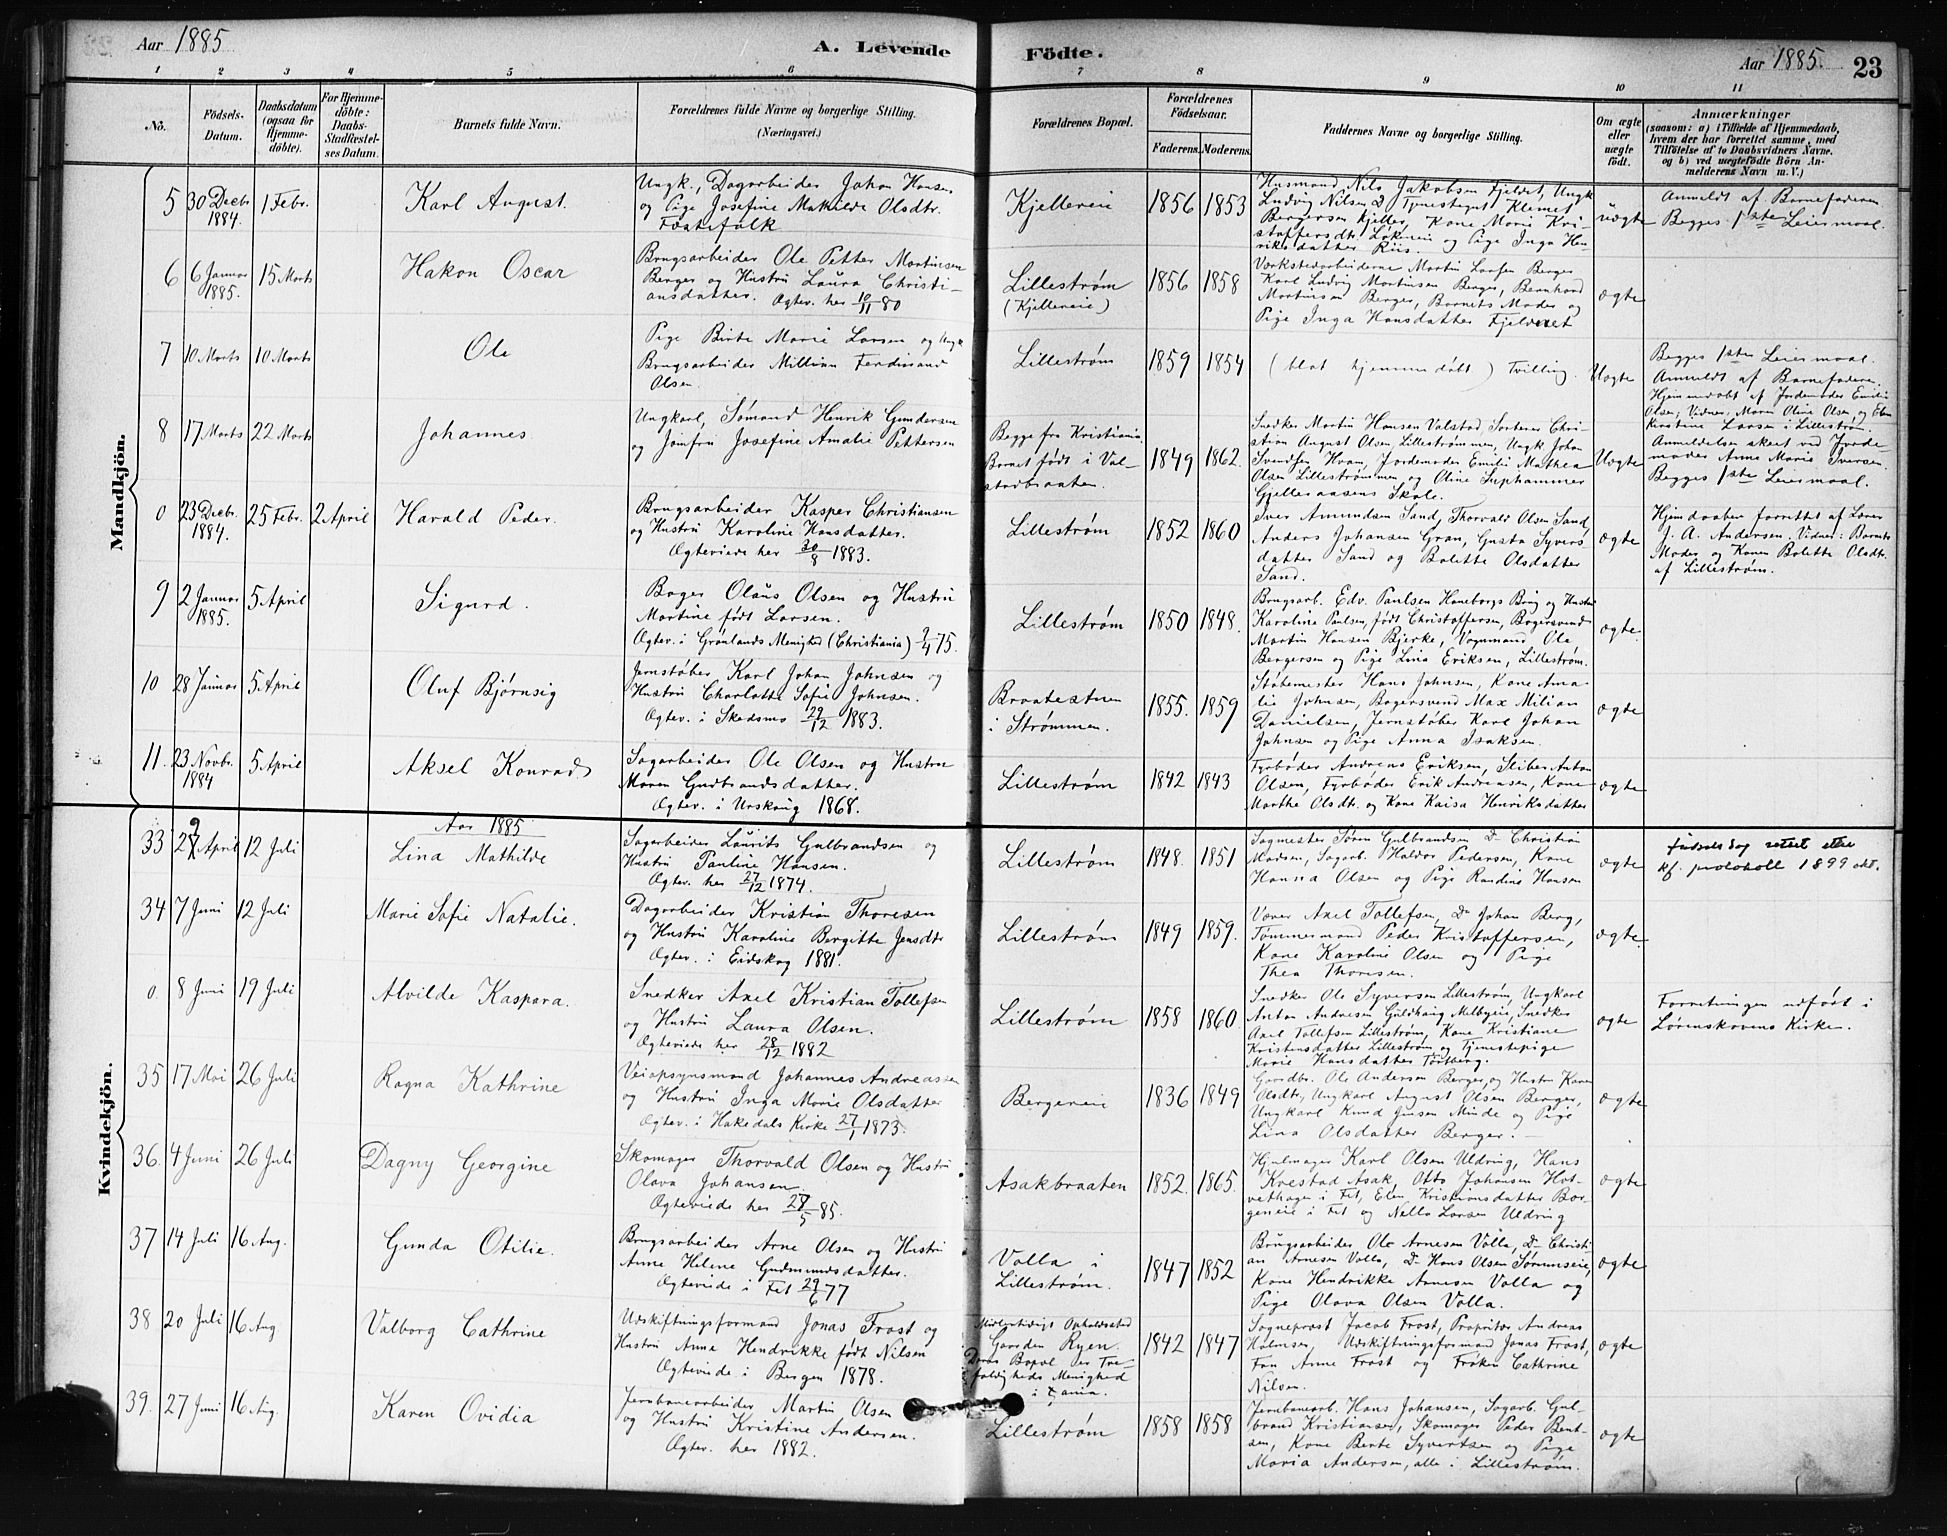 Aar 1885
A. Levende
Födte.
Aar 1885.
23
1 2 3 4 5 6 7 8 9 10 11
No.
Födsels-
Datum.
Daabsdatum
(ogsaa for
Hjemme-
döbte).
For Hjemme-
döbte:
Daabs-
Stadfæstel-
ses Datum.
Barnets fulde Navn.
Forældrenes fulde Navne og borgerlige Stilling.
(Næringsvei.)
Forældrenes Bopæl.
Forældrenes
Födselsaar.
Faderens. Moderens.
Faddernes Navne og borgerlige Stilling.
Om ægte
eller
uægte
født.
Anmærkninger
(saasom: a) i Tilfælde af Hjemmedaab,
hvem der har forrettet samme, med
Tilföielse af to Daabsvidners Navne,
og b) ved uægtefödte Börn An-
melderens Navn m. V.)
Mandkjön.
5
30 Decbr.
1884.
1 Febr.
Karl August.
Ungk., Dagarbeider Johan Hansen
og Pige Josefine Mathilde Olsdtr.
Fostefolk
Kjellereie
1856
1853
Husmand Nils Jakobsen Fjeldet, Ungk
Ludvig Nilsen Do, Tjenestegut Klemet
Bergersen Kjeller, Kone Marie Kri-
stoffersdtr. Løkneie og Pige Inga Hen-
riksdatter Riis
uægte
Anmeldt af Barnefaderen
Begges 1ste Leiermaal.
6
6 Januar
1885.
15 Marts
Hakon Oscar
Brugsarbeider Ole Petter Martinsen
Berger og Hustru Laura Christi-
ansdatter. Ægtev. her 10/11 80
Lillestrøm
(Kjellereie)
1856
1858
Værkstedarbeiderne Martin Larsen Berger
Karl Ludvig Martinsen Berger, Bernhard
Martinsen Berger, Barnets Moder og
Pige Inga Hansdatter Fjeldet
ægte
7
10 Marts
10 Marts
Ole
Pige Birte Marie Larsen og Ungk
Brugsarbeider Millian Ferdinand
Olsen.
Lillestrøm
1859
1854
(blot hjemmedøbt) Tvilling.
Uægte
Begges 1ste Leiermaal.
Anmeldt af Barnefaderen.
Hjemmedøbt af Jordemoder Emilie
Olsen, Vidner, Maren Oline Olsen og Elen
Kristine Larsen i Lillestrøm.
8
17 Marts
22 Marts
Johannes.
Ungkarl, Sømand Henrik Gundersen
og Jomfru Josefine Amalie Pettersen
Begge fra Kristiania,
Barnet født i Val-
stadbraaten.
1849
1862.
Snedker Martin Hansen Valstad, Sorterer Chri-
stian August Olsen, Lillestrømmen, Ungk Johan
Svendsen Hvam, Jordemoder Emilie Mathea
Olsen Lillestrømmen og Oline Inphammer
Gjelleraasens Skole.
Uægte
Anmeldelsen skeet ved Jorde-
moder Anne Marie Iversen.
Begges 1ste Leiermaal.
0
23 Decbr.
1884.
25 Febr.
2 April
Harald Peder.
Brugsarbeider Kasper Christiansen
og Hustru Karoline Hansdatter.
Ægteviede her 30/8 1883.
Lillestrøm
1852
1860
Iver Amundsen Sand, Thorvald Olsen Sand,
Anders Johansen Gran, Gusta Syvers-
datter Sand og Bolette Olsdatter
Sand.
ægte
Hjemdaaben forrettet af Lærer
J. A. Andersen. Vidner: Barnets
Moder og Konen Bolette Olsdtr.
af Lillestrøm.
9
2 Januar
1885.
5 April
Sigurd.
Bager Olaus Olsen og Hustru
Martine født Larsen.
Ægtev. i Grønlands Menighed (Christiania) 2/4 75.
Lillestrøm
1850
1848.
Brugsarb. Edv. Paulsen Haneborgs Brug og Hustru
Karoline Paulsen, født Christoffersen, Bagersvend
Martin Hansen Bjerke, Vognmand Ole
Bergersen og Pige Lina Eriksen, Lillestrøm.
ægte
10
28 Januar
5 April
Oluf Bjørnsig
Jernstøber Karl Johan Johnsen og
Hustru Charlotte Sofie Johnsen.
Ægtev. i Skedsmo 29/12 1883.
Braatestuen
i Strømmen.
1855.
1859
Støbemester Hans Johnsen, Kone Ama-
lie Johnsen, Bagersvend Max Milian
Danielsen, Jernstøber Karl Johan
Johnsen og Pige Anna Isaksen.
ægte
11.
23 Novbr.
1884
5 April
Aksel Konrad
Sagarbeider Ole Olsen og Hustru
Maren Gudbrandsdatter.
Ægtev. i Urskoug 1868.
Lillestrøm
1842
1843
Fyrbøder Andreas Eriksen, Sliber Anton
Olsen, Fyrbøder Erik Andreasen, Kone
Marthe Olsdtr. og Kone Kaisa Henriksdatter
ægte
Kvindekjön.
Aar 1885
33
29 April
12 Juli
Lina Mathilde
Sagarbeider Laurits Gulbrandsen og
Hustru Pauline Hansen.
Ægtev. her 27/12 1874.
Lillestrøm
1848.
1851
Sagmester Søren Gulbrandsen Do Christian
Madsen, Sagarb. Halvor Pedersen, Kone
Hanna Olsen og Pige Randine Hansen
ægte
fødselsdag rettet etter
kf. protokoll 1899
34
7 Juni
12 Juli
Marie Sofie Natalie.
Dagarbeider Kristian Thoresen
og Hustru Karoline Bergitte Jensdtr
Ægtev. i Eidskog 1881.
Lillestrøm
1849
1859.
Væver Axel Tollefsen, Do Johan Berg,
Tømmermand Peder Kristoffersen,
Kone Karoline Olsen og Pige
Thea Thoresen.
ægte
0.
8 Juni
19 Juli
Alvilde Kaspara.
Snedker Axel Kristian Tollefsen
og Hustru Laura Olsen.
Ægteviede her 28/12 1882
Lillestrøm
1858
1860.
Snedker Ole Syversen Lillestrøm, Ungkarl
Anton Andresen Guldhaug Melbyeie, Snedker
Axel Tollefsen Lillestrøm, Kone Kristiane
Kristensdatter Lillestrøm og Tjenestepige
Marie Hansdatter Torsberg.
ægte
Forretningen udført i
Lørenskovens Kirke.
35
17 Mai
26 Juli
Ragna Kathrine
Veiopsynsmand Johannes Andreassen
og Hustru Inga Marie Olsdatter
Ægtev. i Hakedals Kirke 27/1 1873.
Bergereie
1836
1849
Gaardbr. Ole Andersen Berger, og Hustru Karen
Olsdtr., Ungkarl August Olsen Berger,
Ungkarl Knud Jensen Minde og Pige
Lina Olsdatter Berger.
ægte
36.
4 Juni
26 Juli
Dagny Georgine
Skomager Thorvald Olsen og Hustru
Olava Johansen.
Ægteviede her 28/5 85.
Asakbraaten
1852.
1865.
Hjulmager Karl Olsen Uldring, Hans
Kvestad Asak, Otto Johansen Hot-
vethagen i Fet, Elen Kristiansdatter Bor-
geneie i Fet og Nella Larsen Uldring
ægte
37
14 Juli
16 Aug.
Gunda Otilie.
Brugsarbeider Arne Olsen og Hustru
Anne Helene Gudmundsdatter.
Ægteviede i Fet 29/6 77
Volla i
Lillestrøm.
1847
1852
Brugsarbeider Ole Arnesen Volla, Do Christi-
an Arnesen Volla, Do Hans Olsen Sørumseie,
Kone Hendrikke Arnesen Volla og
Pige Olava Olsen Volla.
ægte
38
20 Juli
16 Aug
Valborg Cathrine
Udskiftningsformand Jonas Frost og
Hustru Anne Hendrikke født Nilsen
Ægteviede i Bergen 1878.
Midlertidigt Opholdssted
Gaarden Ryen.
Deres Bopæl er Tre-
foldigheds Menighed
i ania.
1842
1847
Sogneprest Jacob Frost, Proprietær Andreas
Holmsen, Udskiftningsformand Jonas Frost,
Fru Anne Frost og Frøken Cathrine
Nilsen.
ægte
39.
27 Juni
16 Aug.
Karen Ovidia
Jernbanearbeider Martin Olsen
og Hustru Kristine Andersen.
Ægtev. her 1882.
Lillestrøm
1858
1858
Jernbanearb. Hans Johansen, Sagarb. Gul-
brand Kristiansen, Skomager Peder Bent-
sen, Kone Berte Syvertsen og Pige
Maria Andersen, alle i Lillestrøm.
ægte